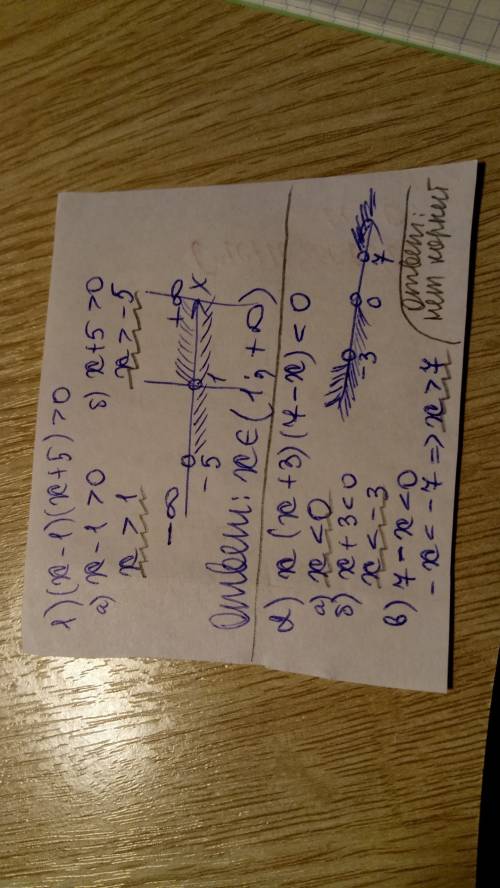 1) (x-1)(x+5)>0
а) x-1>0 б) x+5>0
x>1 x>-5
-∞ +∞
-5 1 x
Ответ: x∈(1; +∞)
2) x(x+3)(7-x)<0
а) x<0
б) x+3<0
x<-3
-3 0 7
в) 7-x<0
-x<-7 => x>7
Ответ:
нет корней